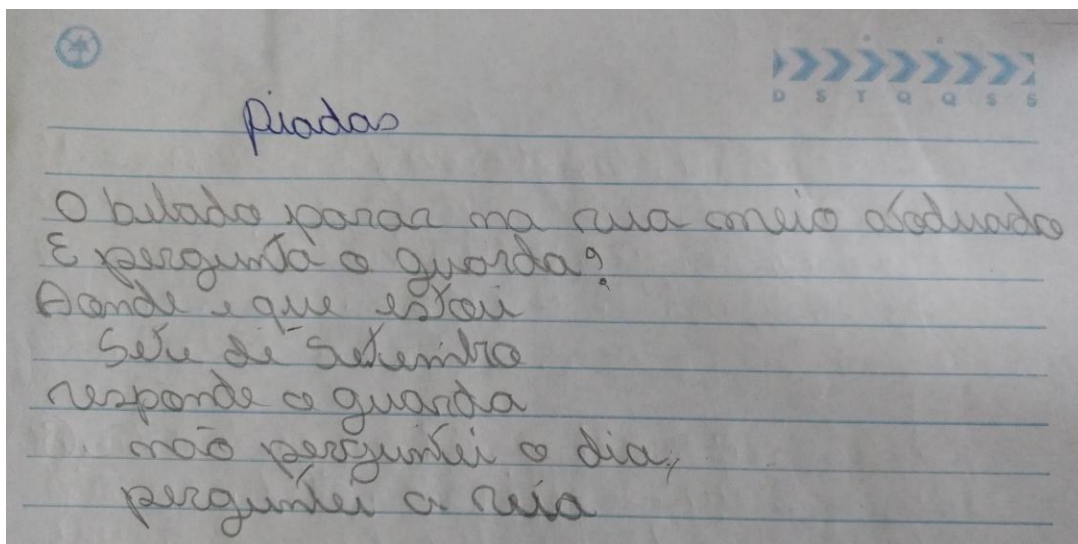 D S T Q Q S S
Piadas
O bebado parar na rua meio
E pergunta o guarda?
Aonde e que estou
Sete de Setembro
responde o guarda
não perguntei o dia,
perguntei a rua